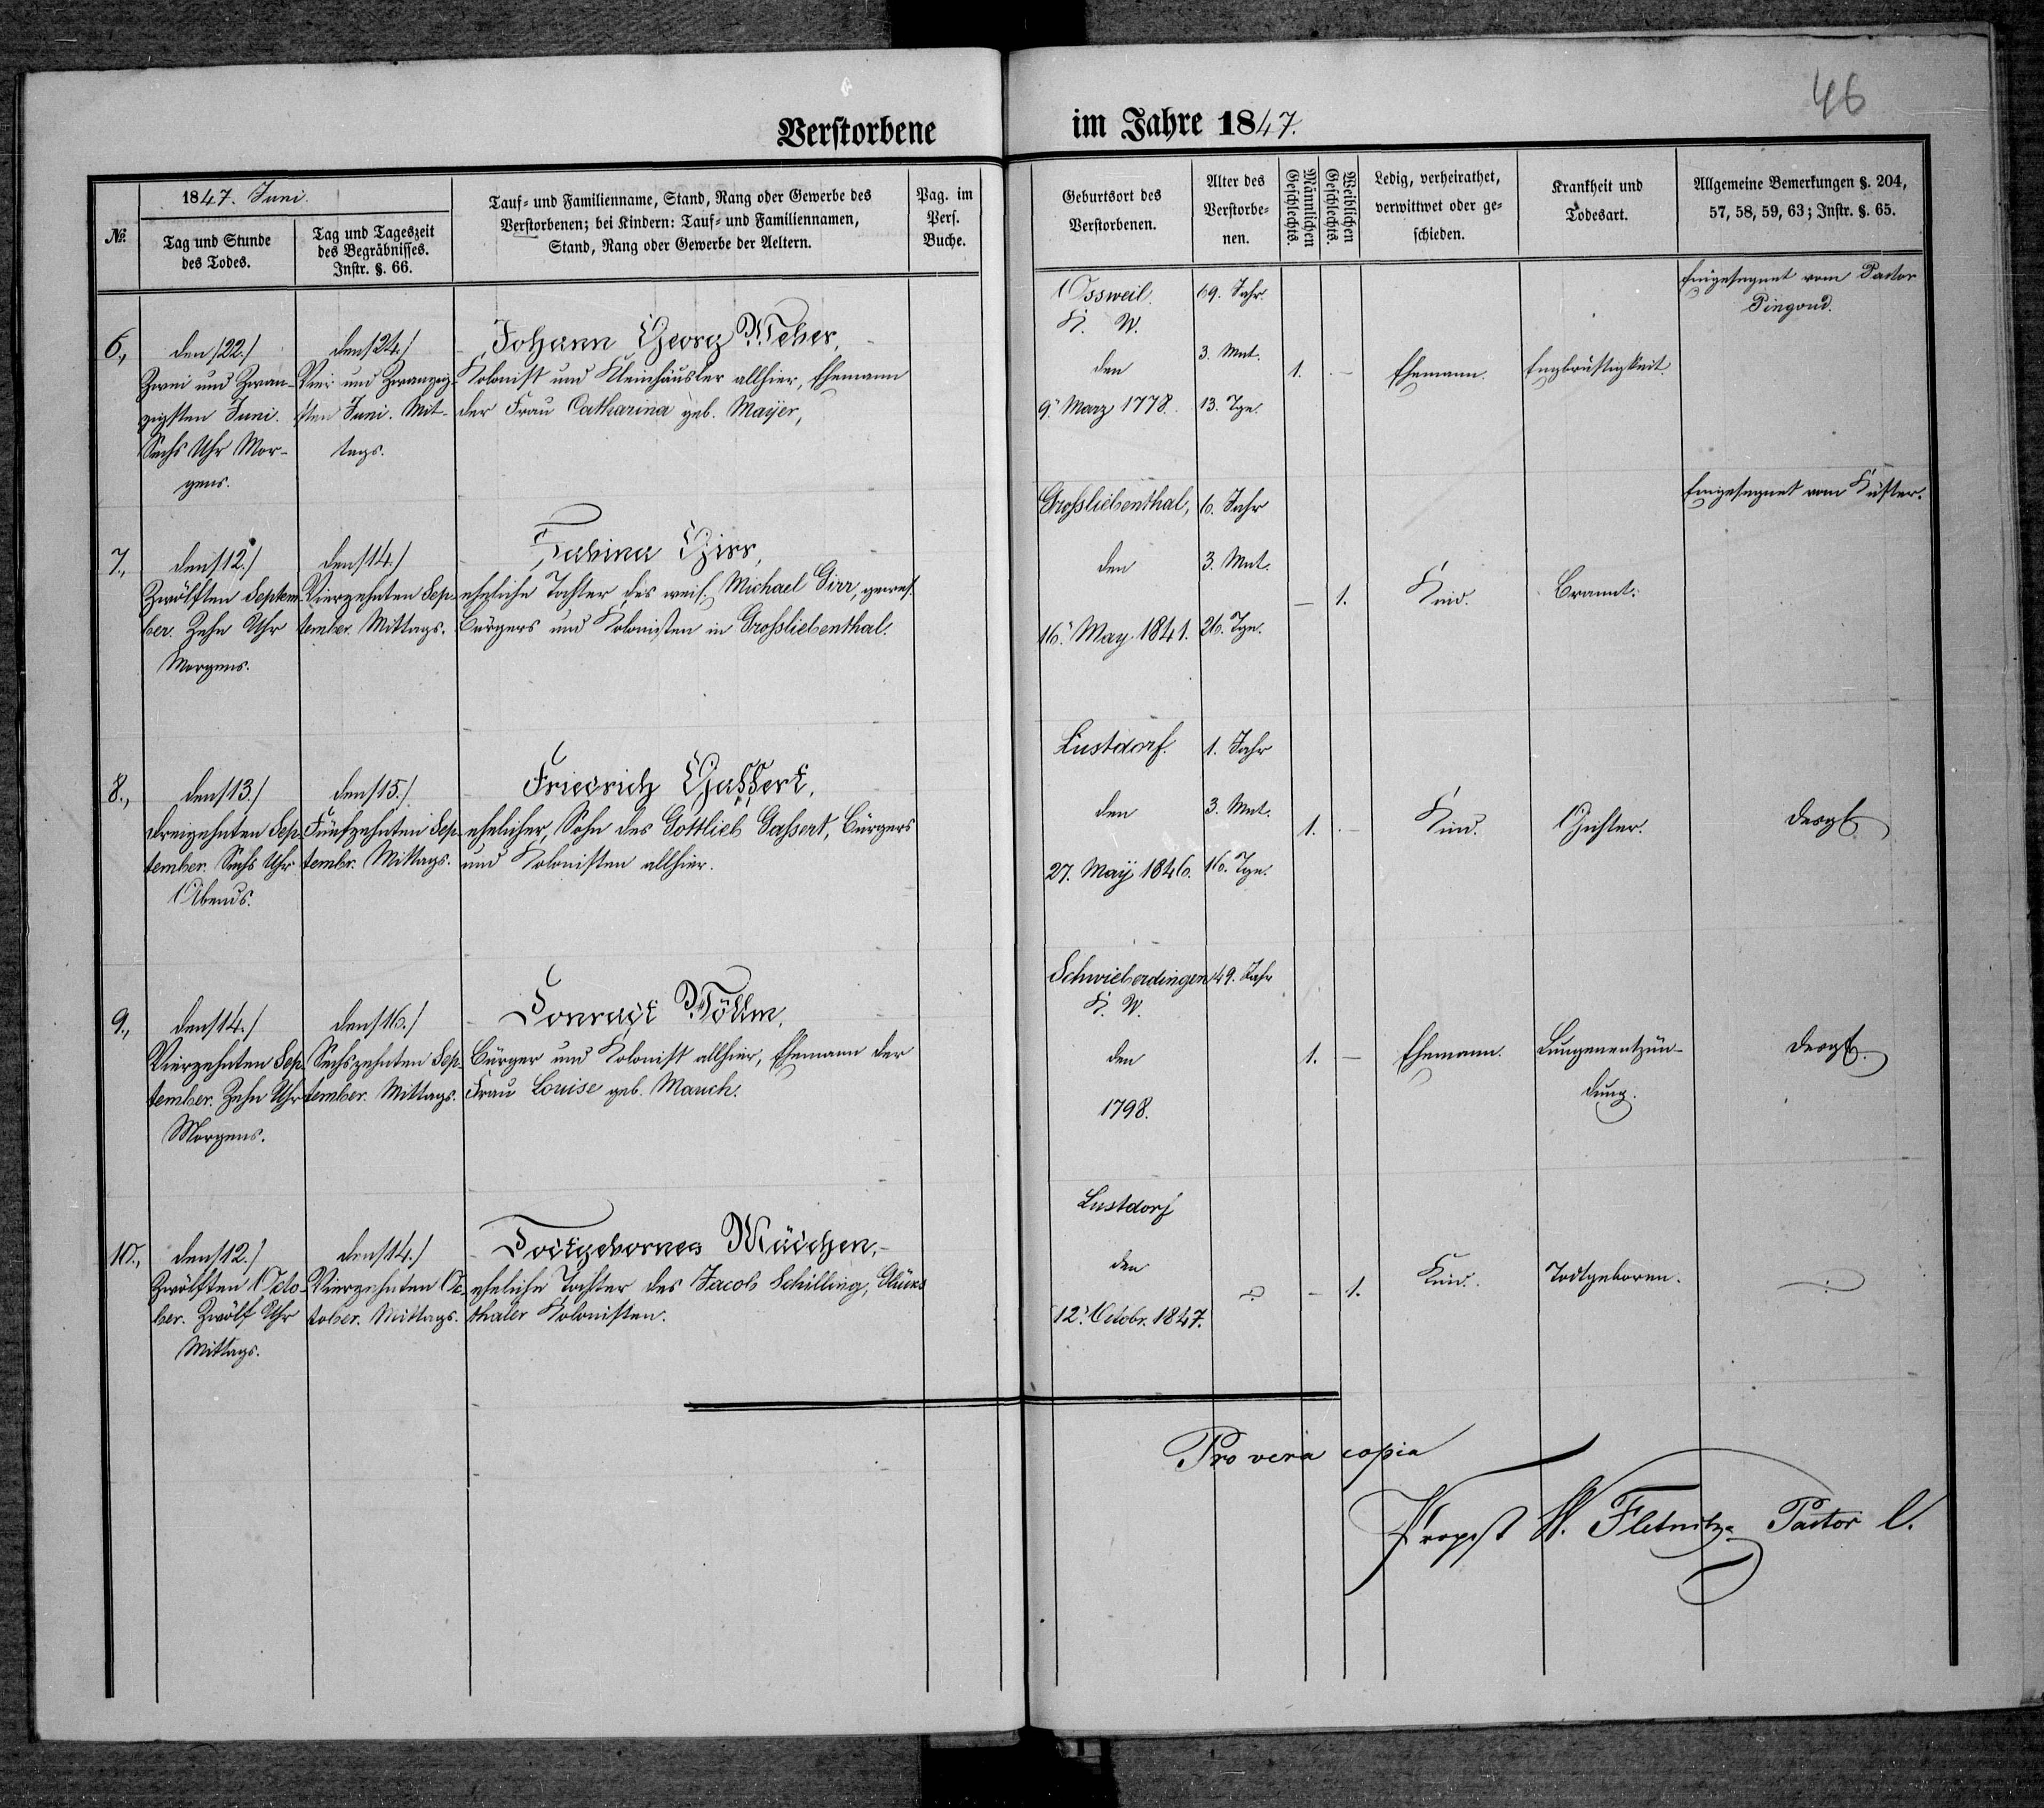 46
Verstorbene im Jahre 1847.
№.
1847. Juni.
Tag und Stunde
des Todes.
Tag und Tageszeit
des Begräbnisses.
Instr. §. 66.
Tauf- und Familienname, Stand, Rang oder Gewerbe des
Verstorbenen; bei Kindern: Tauf- und Familiennamen,
Stand, Rang oder Gewerbe der Aeltern.
Pag. im
Pers.
Buche.
Geburtsort des
Verstorbenen.
Alter des
Verstorbe-
nen.
Männlichen
Geschlechts.
Weiblichen
Geschlechts.
Ledig, verheirathet,
verwittwet oder ge-
schieden.
Krankheit und
Todesart.
Allgemeine Bemerkungen §. 204,
57, 58, 59, 63; Instr. §. 65.
6.,
den /22./
Zwei und Zwan-
zigsten Juni.
Sechs Uhr Mor-
gens.
den /24./
Vier und Zwanzig-
sten Juni. Mit-
tags.
Johann Georg Weber,
Kolonist und Kleinhäusler allhier, Ehemann
der Frau Catharina geb. Mayer,
Ossweil.
K. W.
den
9. März 1778.
69. Jahr.
3. Mnt.
13. Tge.
1.
-
Ehemann.
Engbrüstigkeit.
Eingesegnet vom Pastor
Pingoud.
7.,
den /12./
Zwölften Septem-
ber. Zehn Uhr
Morgens.
den /14./
Vierzehnten Sep-
tember. Mittags.
Sabina Girr,
eheliche Tochter des weil. Michael Girr, gewes.
Bürgers und Kolonisten in Grossliebenthal.
Grossliebenthal,
den
16. May 1841.
6. Jahr
3. Mnt.
26. Tge.
-
1.
Kind.
Brannt.
Eingesegnet vom Küster.
8.,
den /13./
Dreizehnten Sep-
tember. Sechs Uhr
Abends.
den /15./
Fünfzehnten Sep-
tembr. Mittags.
Friedrich Gassert,
ehelicher Sohn des Gottlieb Gassert, Bürgers
und Kolonisten allhier.
Lustdorf.
den
27. May 1846.
1. Jahr
3. Mnt.
16. Tge.
1.
-
Kind.
Gichter.
desgl.
9.,
den /14./
Vierzehnten Sep-
tember. Zehn Uhr
Morgens.
den /16./
Sechszehnten Sep-
tember. Mittags.
Conradt Völlm,
Bürger und Kolonist allhier, Ehemann der
Frau Louise geb. Mauch.
Schwieberdingen
K. W.
den
1798.
49. Jahr
1.
-
Ehemann.
Lungenentzün-
dung.
desgl.
10.,
den /12./
Zwölften Octo-
ber. Zwölf Uhr
Mittags.
den /14./
Vierzehnten Oc-
tober. Mittags.
Todtgebornes Mädchen,
eheliche Tochter des Jacob Schilling, Glücks
thaler Kolonisten.
Lustdorf
den
12. Octobr. 1847.
-
1.
Kind.
Todtgeboren.
Pro vera copia
Propst W. Fletnitzer Pastor l.